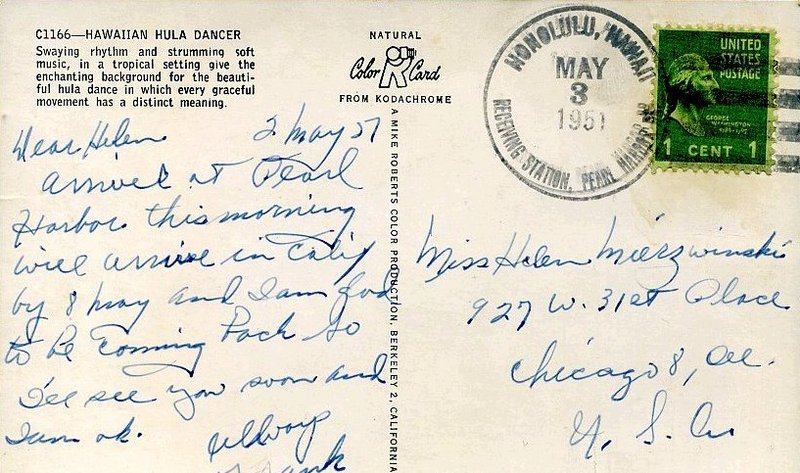 C1166—HAWAIIAN HULA DANCER
Swaying rhythm and strumming soft
music, in a tropical setting give the
enchanting background for the beauti-
ful hula dance in which every graceful
movement has a distinct meaning.
NATURAL
Color Card
FROM KODACHROME
A MIKE ROBERTS COLOR PRODUCTION, BERKELEY 2, CALIFORNIA
HONOLULU, HAWAII
MAY
3
1951
RECEIVING STATION, PEARL HARBOR BR.
UNITED
STATES
POSTAGE
GEORGE
WASHINGTON
1 CENT 1
Dear Helen 2 May 51
Arrived at Pearl
Harbor this morning
will arrive in Calif
by 8 may and I am God
to be coming back so
I'll see you soon and
I am ok.
Always
Frank
Miss Helen Mierzwinski
927 W. 31st Place
Chicago 8, Ill.
U. S. A.